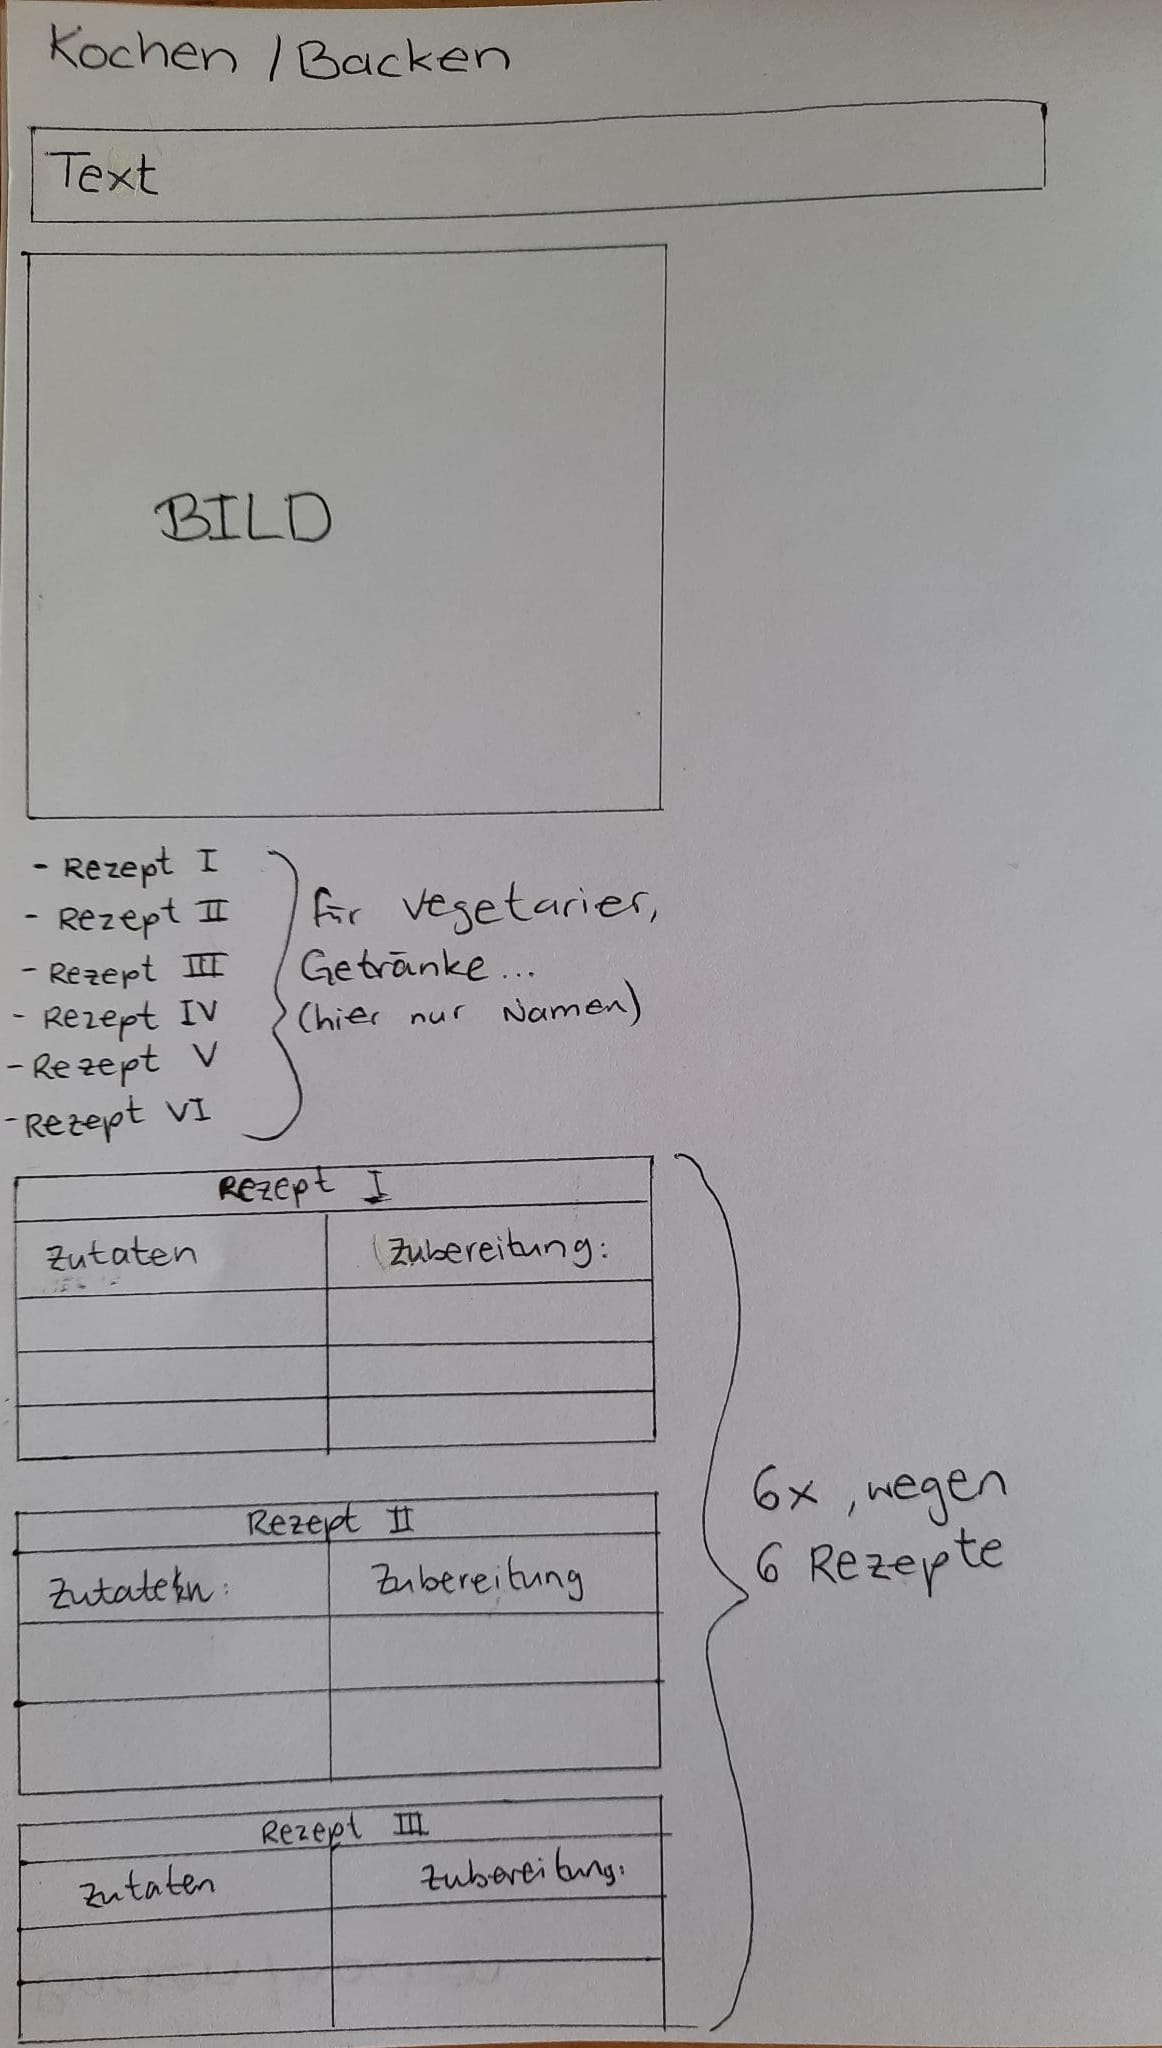 Kochen / Backen
Text
BILD
- Rezept I
- Rezept II
- Rezept III
- Rezept IV
- Rezept V
- Rezept VI
für Vegetarier,
Getränke...
(hier nur Namen)
Rezept I
Zutaten
Zubereitung:
Rezept II
Zutaten:
Zubereitung
Rezept III
Zutaten
Zubereitung:
6x, wegen
6 Rezepte